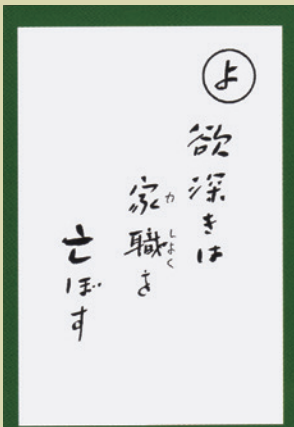 よ
欲深きは
家職を
かしょく
亡ぼす